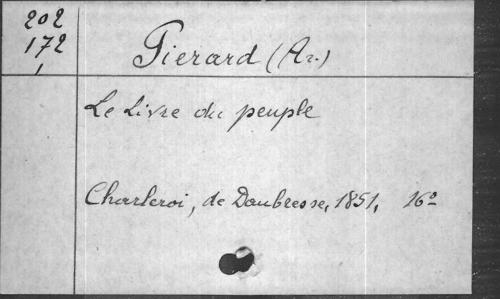 202
172
1
Piérard (Ar.)
Le Livre du peuple
Charleroi, de Daubresse, 1851, 16º